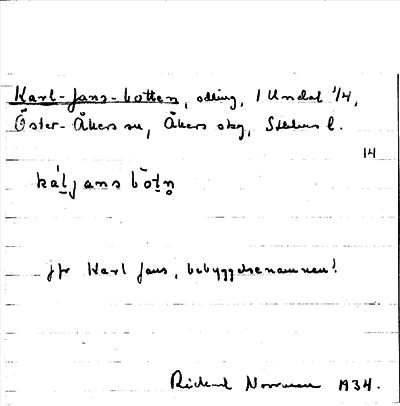 Karl-Jans-botten, odling, 1 Undal 1/4,
Öster-Åkers sn, Åkers skg, Sthlms l.
14
jfr Karl Jans, bebyggelsenamnen!
Rickard Norrman 1934.